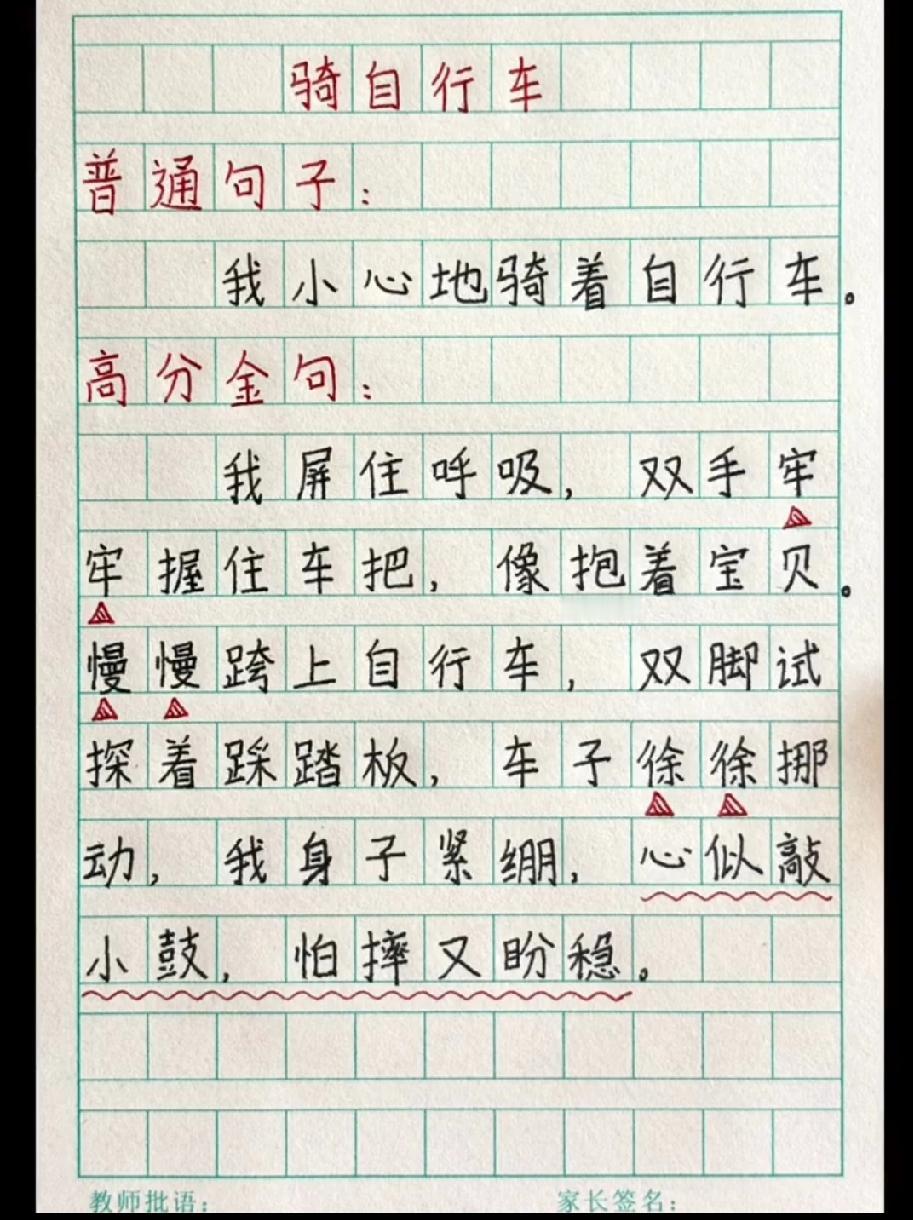 骑自行车
普通句子：
我小心地骑着自行车。
高分金句：
我屏住呼吸，双手牢
牢握住车把，像抱着宝贝。
慢慢跨上自行车，双脚试
探着踩踏板，车子徐徐挪
动，我身子紧绷，心似敲
小鼓，怕摔又盼稳。
教师批语： 家长签名：